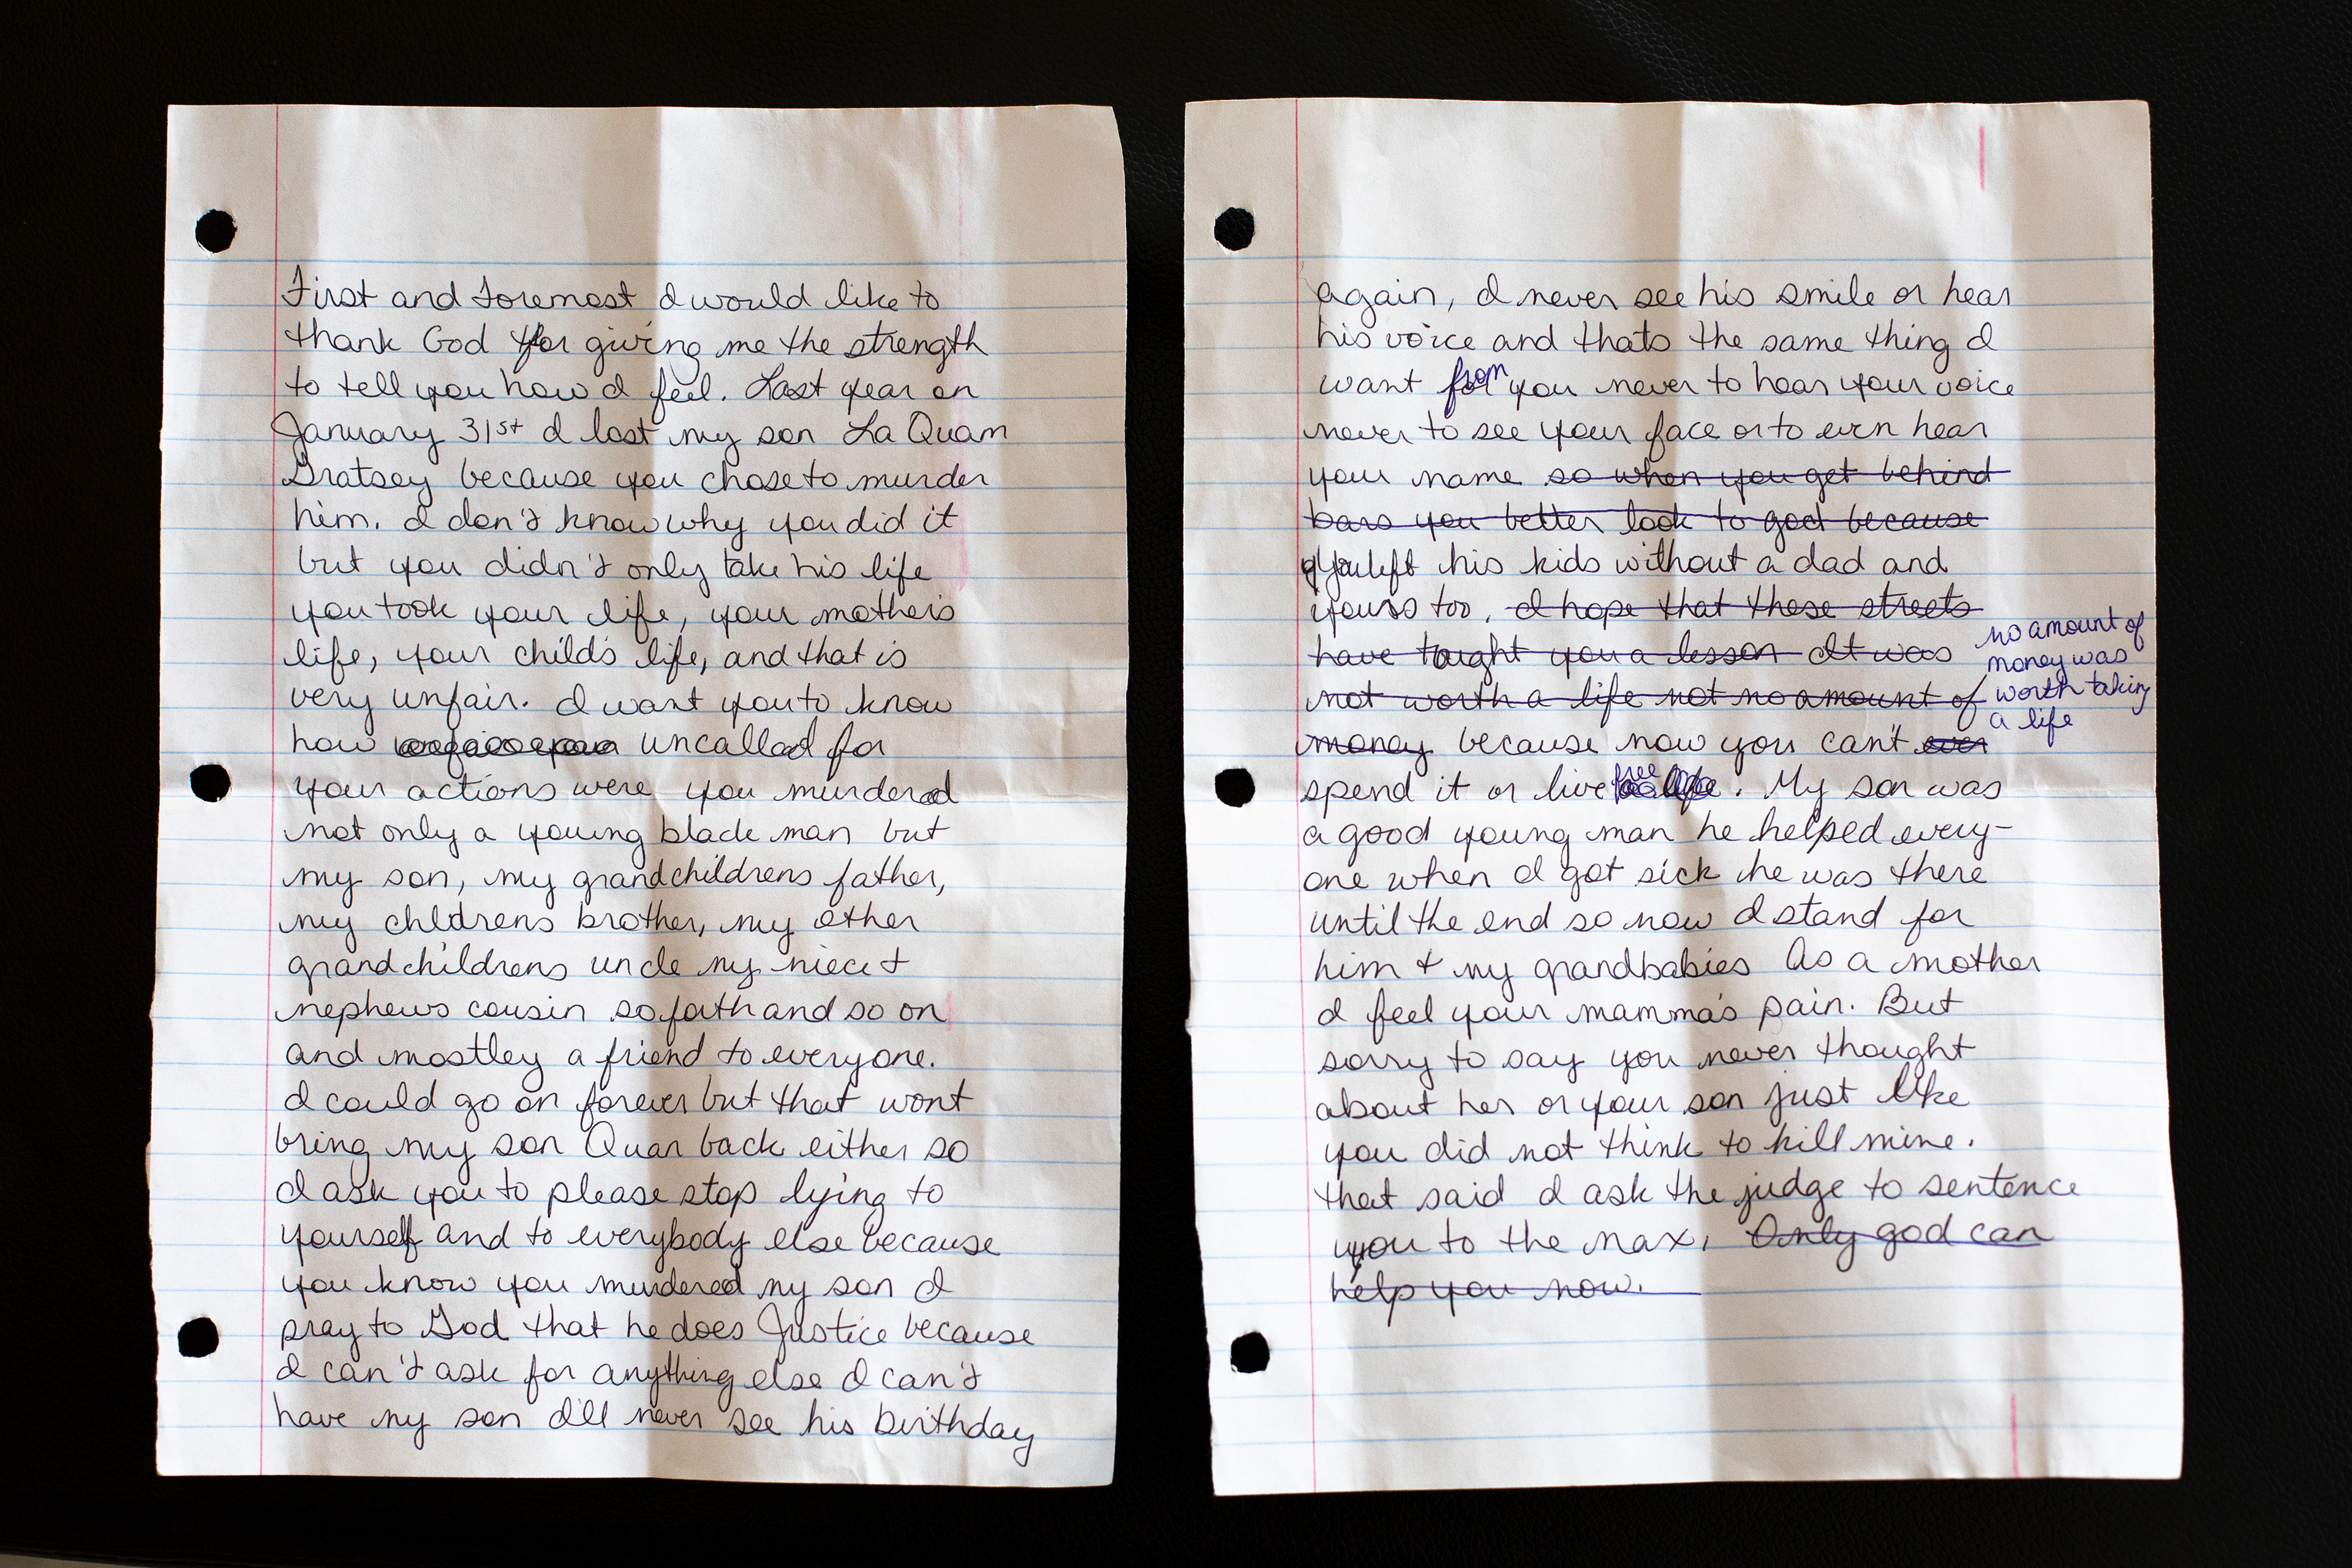 First and foremost I would like to
thank God for giving me the strength
to tell you how I feel. Last year on
January 31st I lost my son La Quam
Gratsey because you chose to murder
him. I don't know why you did it
but you didn't only take his life
you took your life, your mother's
life, your child's life, and that is
very unfair. I want you to know
how uncalled for
your actions were you murdered
not only a young black man but
my son, my grandchildrens father,
my chldrens brother, my other
grandchildrens uncle my niece &
nephews cousin so forth and so on
and mostley a friend to everyone.
I could go on forever but that wont
bring my son Quan back either so
I ask you to please stop lying to
yourself and to everybody else because
you know you murdered my son I
pray to God that he does Justice because
I can't ask for anything else I can't
have my son I'll never see his birthday
again, I never see his smile or hear
his voice and thats the same thing I
want from you never to hear your voice
never to see your face or to even hear
your name so when you get behind
bars you better look to god because
You left his kids without a dad and
yours too. I hope that these streets
have taught you a lesson It was
not worth a life not no amount of
no amount of
money was
worth taking
a life
money because now you can't ever
spend it or live free. My son was
a good young man he helped every-
one when I got sick he was there
until the end so now I stand for
him & my grandbabies As a mother
I feel your mamma's pain. But
sorry to say you never thought
about her or your son just like
you did not think to kill mine.
that said I ask the judge to sentence
you to the max. Only god can
help you now.